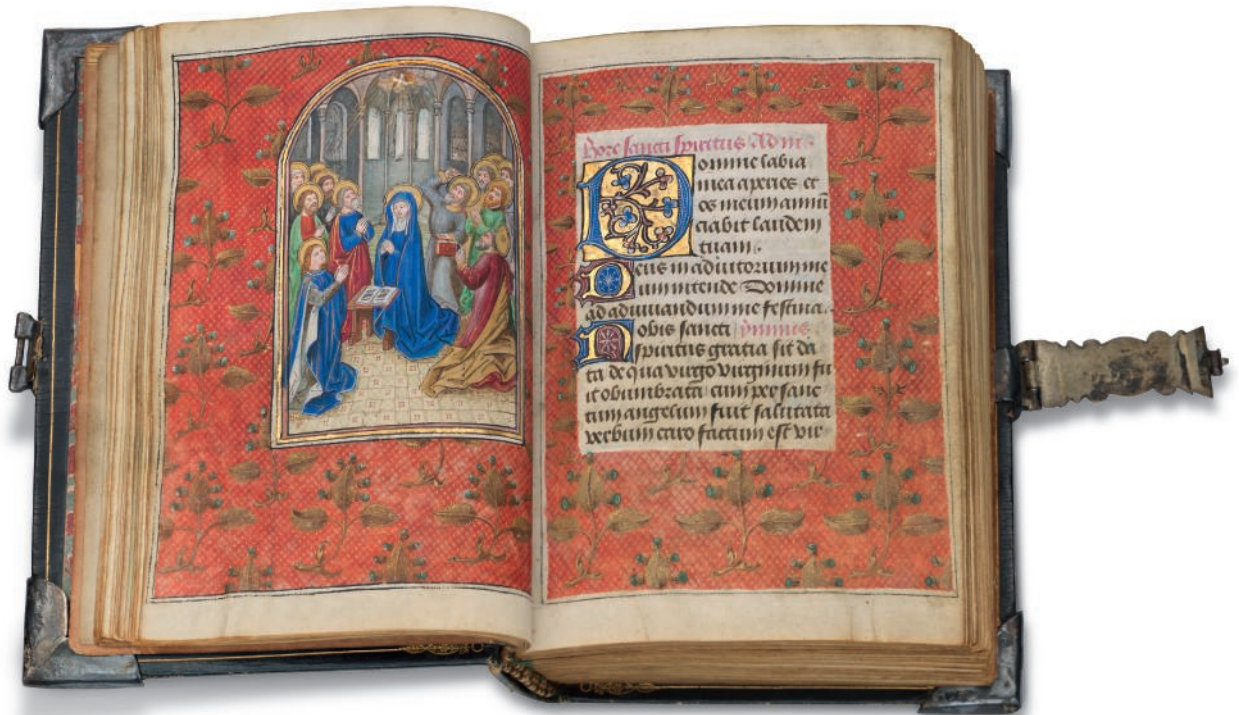 Hore sancti spiritus Ad m
Domine labia
mea aperies et
os meum annū
ciabit laudem
tuam.
Deus in adiutorium me
um intende Domine
ad adiuuandum me festina.
Nobis sancti ymnus
spiritus gratia sit da
ta de qua virgo virginum fu
it obumbrata cum per sanc
tum angelum fuit salutata
verbum caro factum est vir